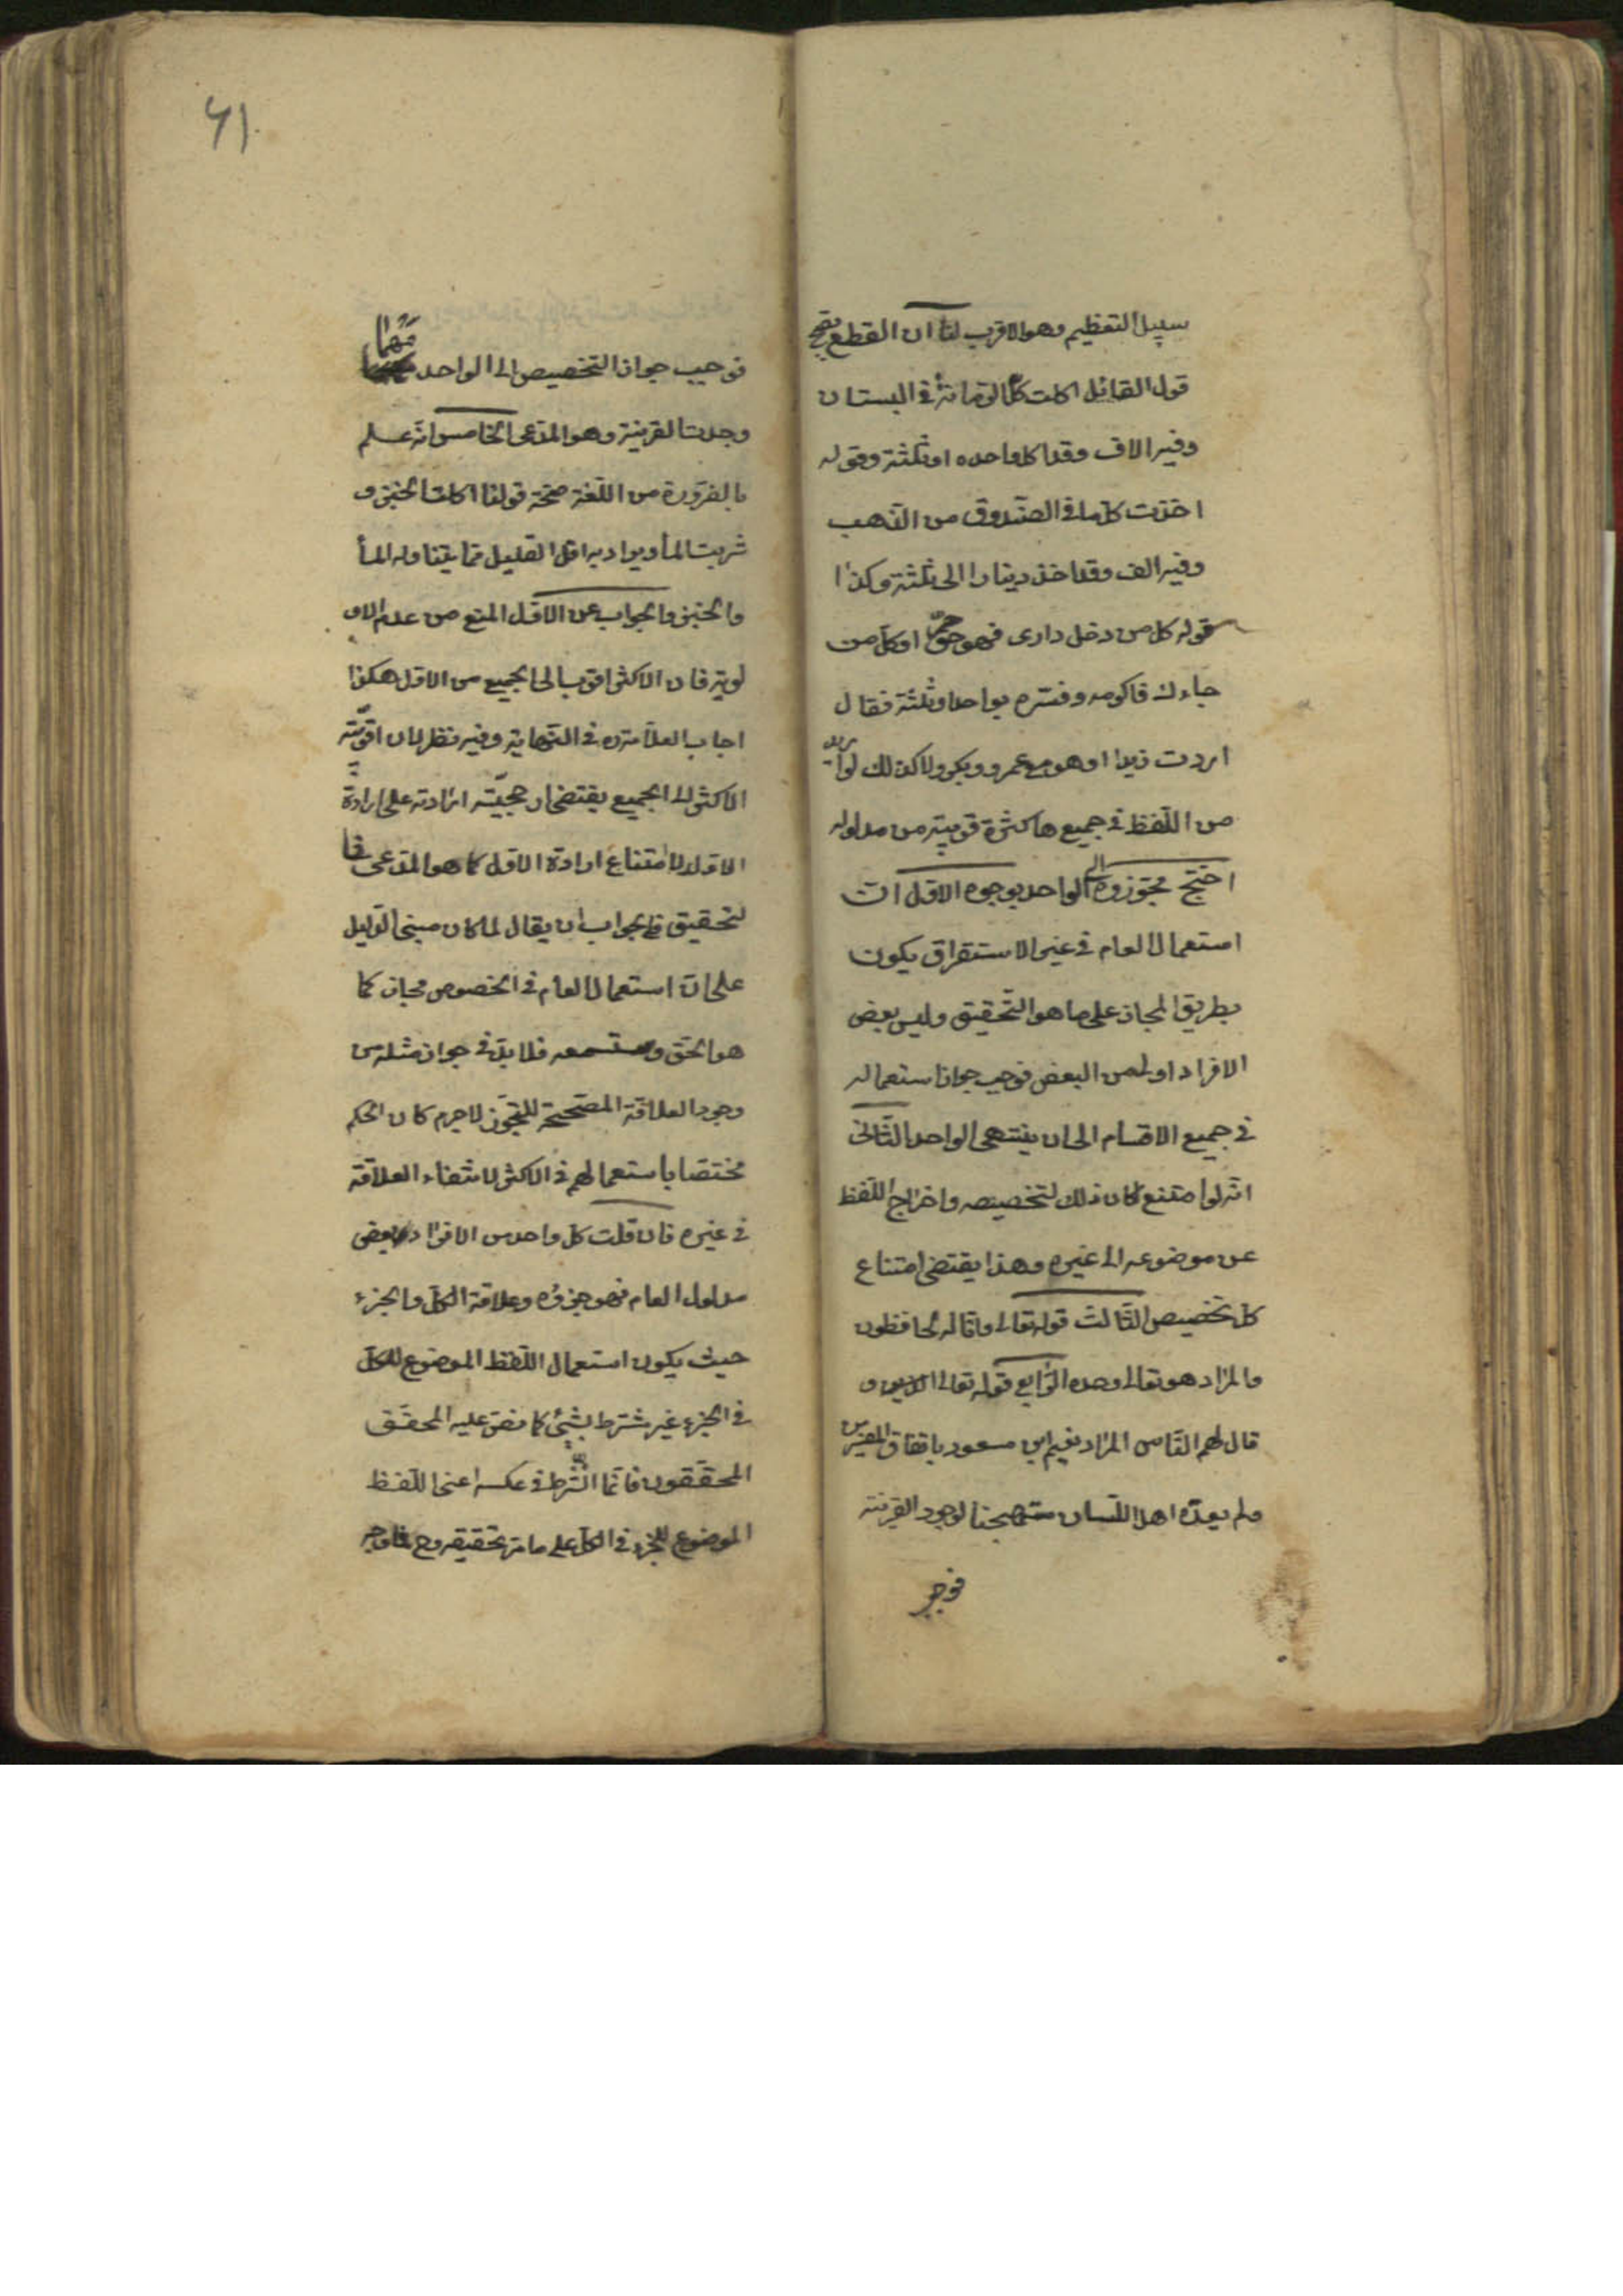 سبيل التعظيم وهو الاقرب لنا ان القطع بقبح
قول القائل اكلت كل الرمانة في البستان
وفيه الاف وقد اكل واحده او ثلثة وقوله
اخذت كل ما في الصندوق من الذهب
وفيه الف وقد اخذ دينارا الى ثلثة وكذا
قوله كل من دخل داري فهو حرّ او كل من
جاءك فاكرمه وفسّره بواحد او ثلثة فقال
اردت زيدا او هو مع عمرو وبكر ولا كذلك لو اريد
من اللفظ في جميعها كثرة قريبة من مدلوله
احتج مجوّزوه الى الواحد بوجوه الاول ان
استعمال العام في غير الاستقراق يكون
بطريق المجاز على ما هو التحقيق وليس بعض
الافراد اولى من البعض فوجب جواز استعماله
في جميع الاقسام الى ان ينتهى الواحد الثاني
انه لو امتنع لكان ذلك لتخصيصه واخراج اللفظ
عن موضوعه الى غيره وهذا يقتضى امتناع
كل تخصيص الثالث قوله تعالى وانا له لحافظون
والمراد هو تعالى وحده الرابع قوله تعالى الذين
قال لهم الناس المراد نعيم ابن مسعود باتفاق المفسرين
ولم يعدّه اهل اللسان مستهجنا لوجود القرينة
فوجب
٦١
فوجب جواز التخصيص الى الواحد مهما
وجدت القرينة وهو المدعى الخامس انه علم
بالضرورة من اللغة صحة قولنا اكلت الخبز و
شربت الماء ويراد به اقل القليل مما يتناوله الماء
والخبز والجواب عن الاول المنع من عدم الاو
لوية فان الاكثر اقرب الى الجميع من الاقل هكذا
اجاب العلامة ره في النهاية وفيه نظر لان اقربيّة
الاكثر الى الجميع يقتضى ارجحيّة ارادته على ارادة
الاقل لا امتناع ارادة الاقل كما هو المدعى فا
لتحقيق في الجواب ان يقال لما كان مبنى الدليل
على ان استعمال العام في الخصوص مجاز كما
هو الحق وستسمعه فلا بد في جواز مثله من
وجود العلاقة المصححة للتجوّز لا جرم كان الحكم
مختصا باستعمالهم في الاكثر لانتفاء العلاقة
في غيره فان قلت كل واحد من الافراد بعض
مدلول العام فهو جزؤه وعلاقة الكل والجزء
حيث يكون استعمال اللفظ الموضوع للكل
في الجزء غير مشترط بشيء كما نص عليه المحقق
المحققون فانما الشرط في عكسه اعنى اللفظ
الموضوع للجزء في الكل على ما مرّ تحقيقه وح فما وجه